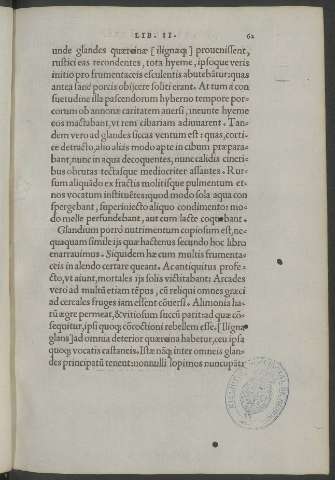 LIB. II. 62
unde glandes quæcũnæ [ilignaq;] prouenissent,
rustici eas recondentes, tota hyeme, ipsoque veris
initio pro frumentaceis esculentis abutebãtur: quas
antea sanè porcis obijcere soliti erant. At tum à con
suetudine illa pascendorum hyberno tempore por-
corum ob annonæ caritatem auersi, ineunte hyeme
eos mactabant, vt rem cibariam adiuuarent. Tan-
dem vero ad glandes siccas ventum est: quas, corti-
ce detracto, alio aliàs modo apte in cibum præpara-
bant, nunc in aqua decoquentes, nunc calidis cineri-
bus obrutas tectasque mediocriter assantes. Rur-
sum aliquãdo ex fractis molitisque pulmentum et-
nos vocatum instituẽtes: quod modo sola aqua con
spergebant, superiniecto aliquo condimento: mo-
do melle perfundebant, aut cum lacte coquebant.
Glandium porrò nutrimentum copiosum est, ne-
quaquam simile ijs quæ hactenus secundo hoc libro
enarrauimus. Siquidem hæ cum multis frumenta-
ceis in alendo certare queant. Ac antiquitus profe-
ctò, vt aiunt, mortales ijs solis victitabant: Arcades
vero ad multũ etiam tẽpus, cũ reliqui omnes græci
ad cereales fruges iam essent cõuersi. Alimonia ha-
rũ ægre permeat, & vitiosum succũ parit: ad quæ cõ-
sequitur, ipsi quoq; cõcoctioni rebellem esse. [Iligna
glans] ad omnia deterior habetur, ceu ipsa
quoq; vocatis castaneis. Istæ nãq; inter omneis glan-
des principatũ tenent: nonnulli lopimos nuncupãt